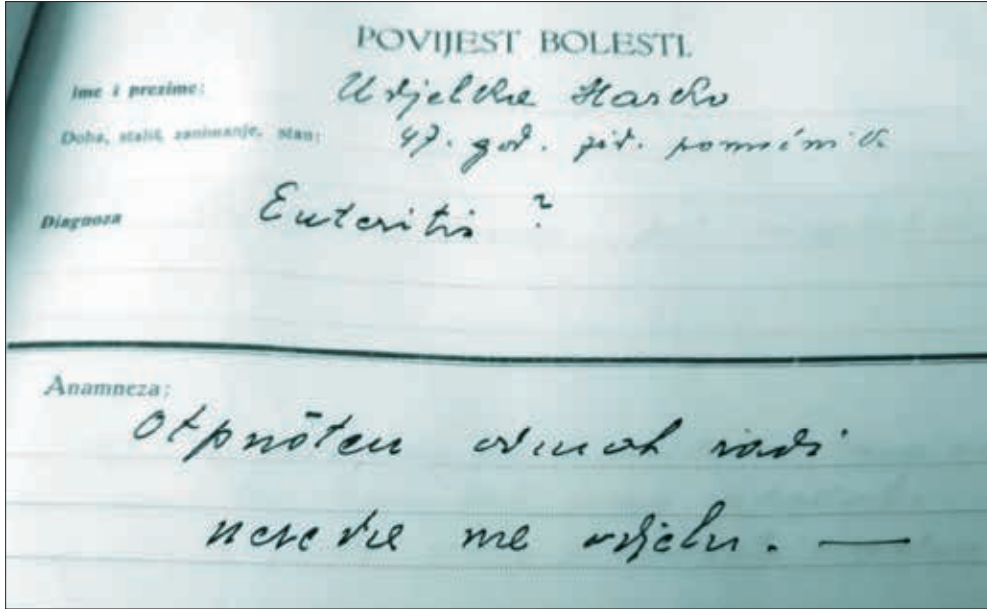 POVIJEST BOLESTI.
Ime i prezime: Udjelke Marko
Doba, stališ, zanimanje, stan: 47. god. žid. pomoćnik
Diagnoza Enteritis ?
Anamneza:
Otpušten odmah radi
nereda na odjelu. —